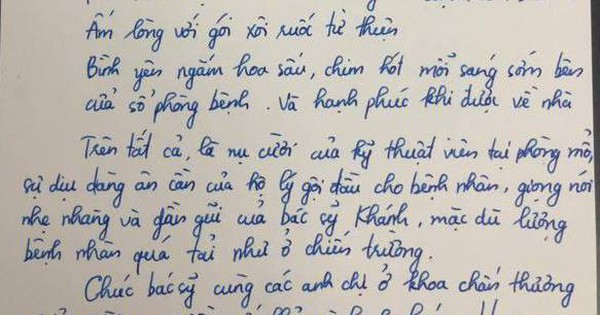 Ấm lòng với gói xôi ruốc từ thiện
Bình yên ngắm hoa sấu, chim hót mỗi sáng sớm bên
cửa sổ phòng bệnh. Và hạnh phúc khi được về nhà
Trên tất cả, là nụ cười của kỹ thuật viên tại phòng mổ,
sự dịu dàng ân cần của hộ lý gội đầu cho bệnh nhân, giọng nói
nhẹ nhàng và gần gũi của bác sỹ Khánh, mặc dù lượng
bệnh nhân quá tải như ở chiến trường.
Chúc bác sỹ cùng các anh chị ở khoa chấn thương